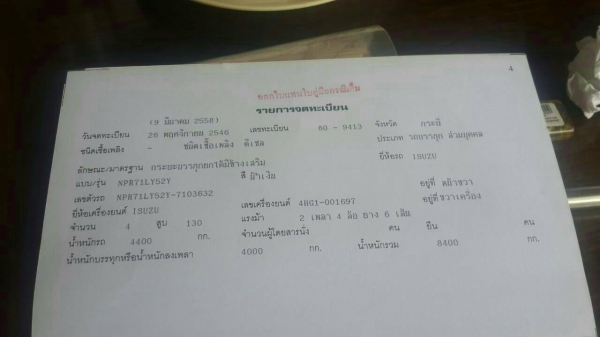 4
ออกใบแทนใบคู่มือกรณีเต็ม
รายการจดทะเบียน
(9 มีนาคม 2558)
วันจดทะเบียน 26 พฤศจิกายน 2546 เลขทะเบียน 80 - 9413 จังหวัด กระบี่
ชนิดเชื้อเพลิง - ชนิดเชื้อเพลิง ดีเซล ประเภท รถบรรทุก ส่วนบุคคล
ลักษณะ/มาตรฐาน กระบะบรรทุกอกไก่มีข้างเสริม ยี่ห้อรถ ISUZU
แบบ/รุ่น NPR71LY52Y สี ฟ้าเงิน
เลขตัวรถ NPR71LY52Y-7103632 อยู่ที่ คัสซีขวา
ยี่ห้อเครื่องยนต์ ISUZU เลขเครื่องยนต์ 4HG1-001697 อยู่ที่ ขวาเครื่อง
จำนวน 4 สูบ 130 แรงม้า 2 เพลา 4 ล้อ ยาง 6 เส้น
น้ำหนักรถ 4400 กก. จำนวนผู้โดยสารนั่ง คน ยืน คน
น้ำหนักบรรทุกหรือน้ำหนักลงเพลา 4000 กก. น้ำหนักรวม 8400 กก.